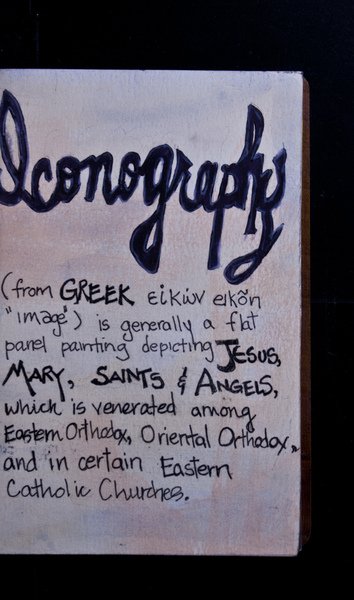 Iconography
(from GREEK εἰκών eikōn
"image") is generally a flat
panel painting depicting JESUS,
MARY, SAINTS & ANGELS,
which is venerated among
Eastern Orthodox, Oriental Orthodox,
and in certain Eastern
Catholic Churches.